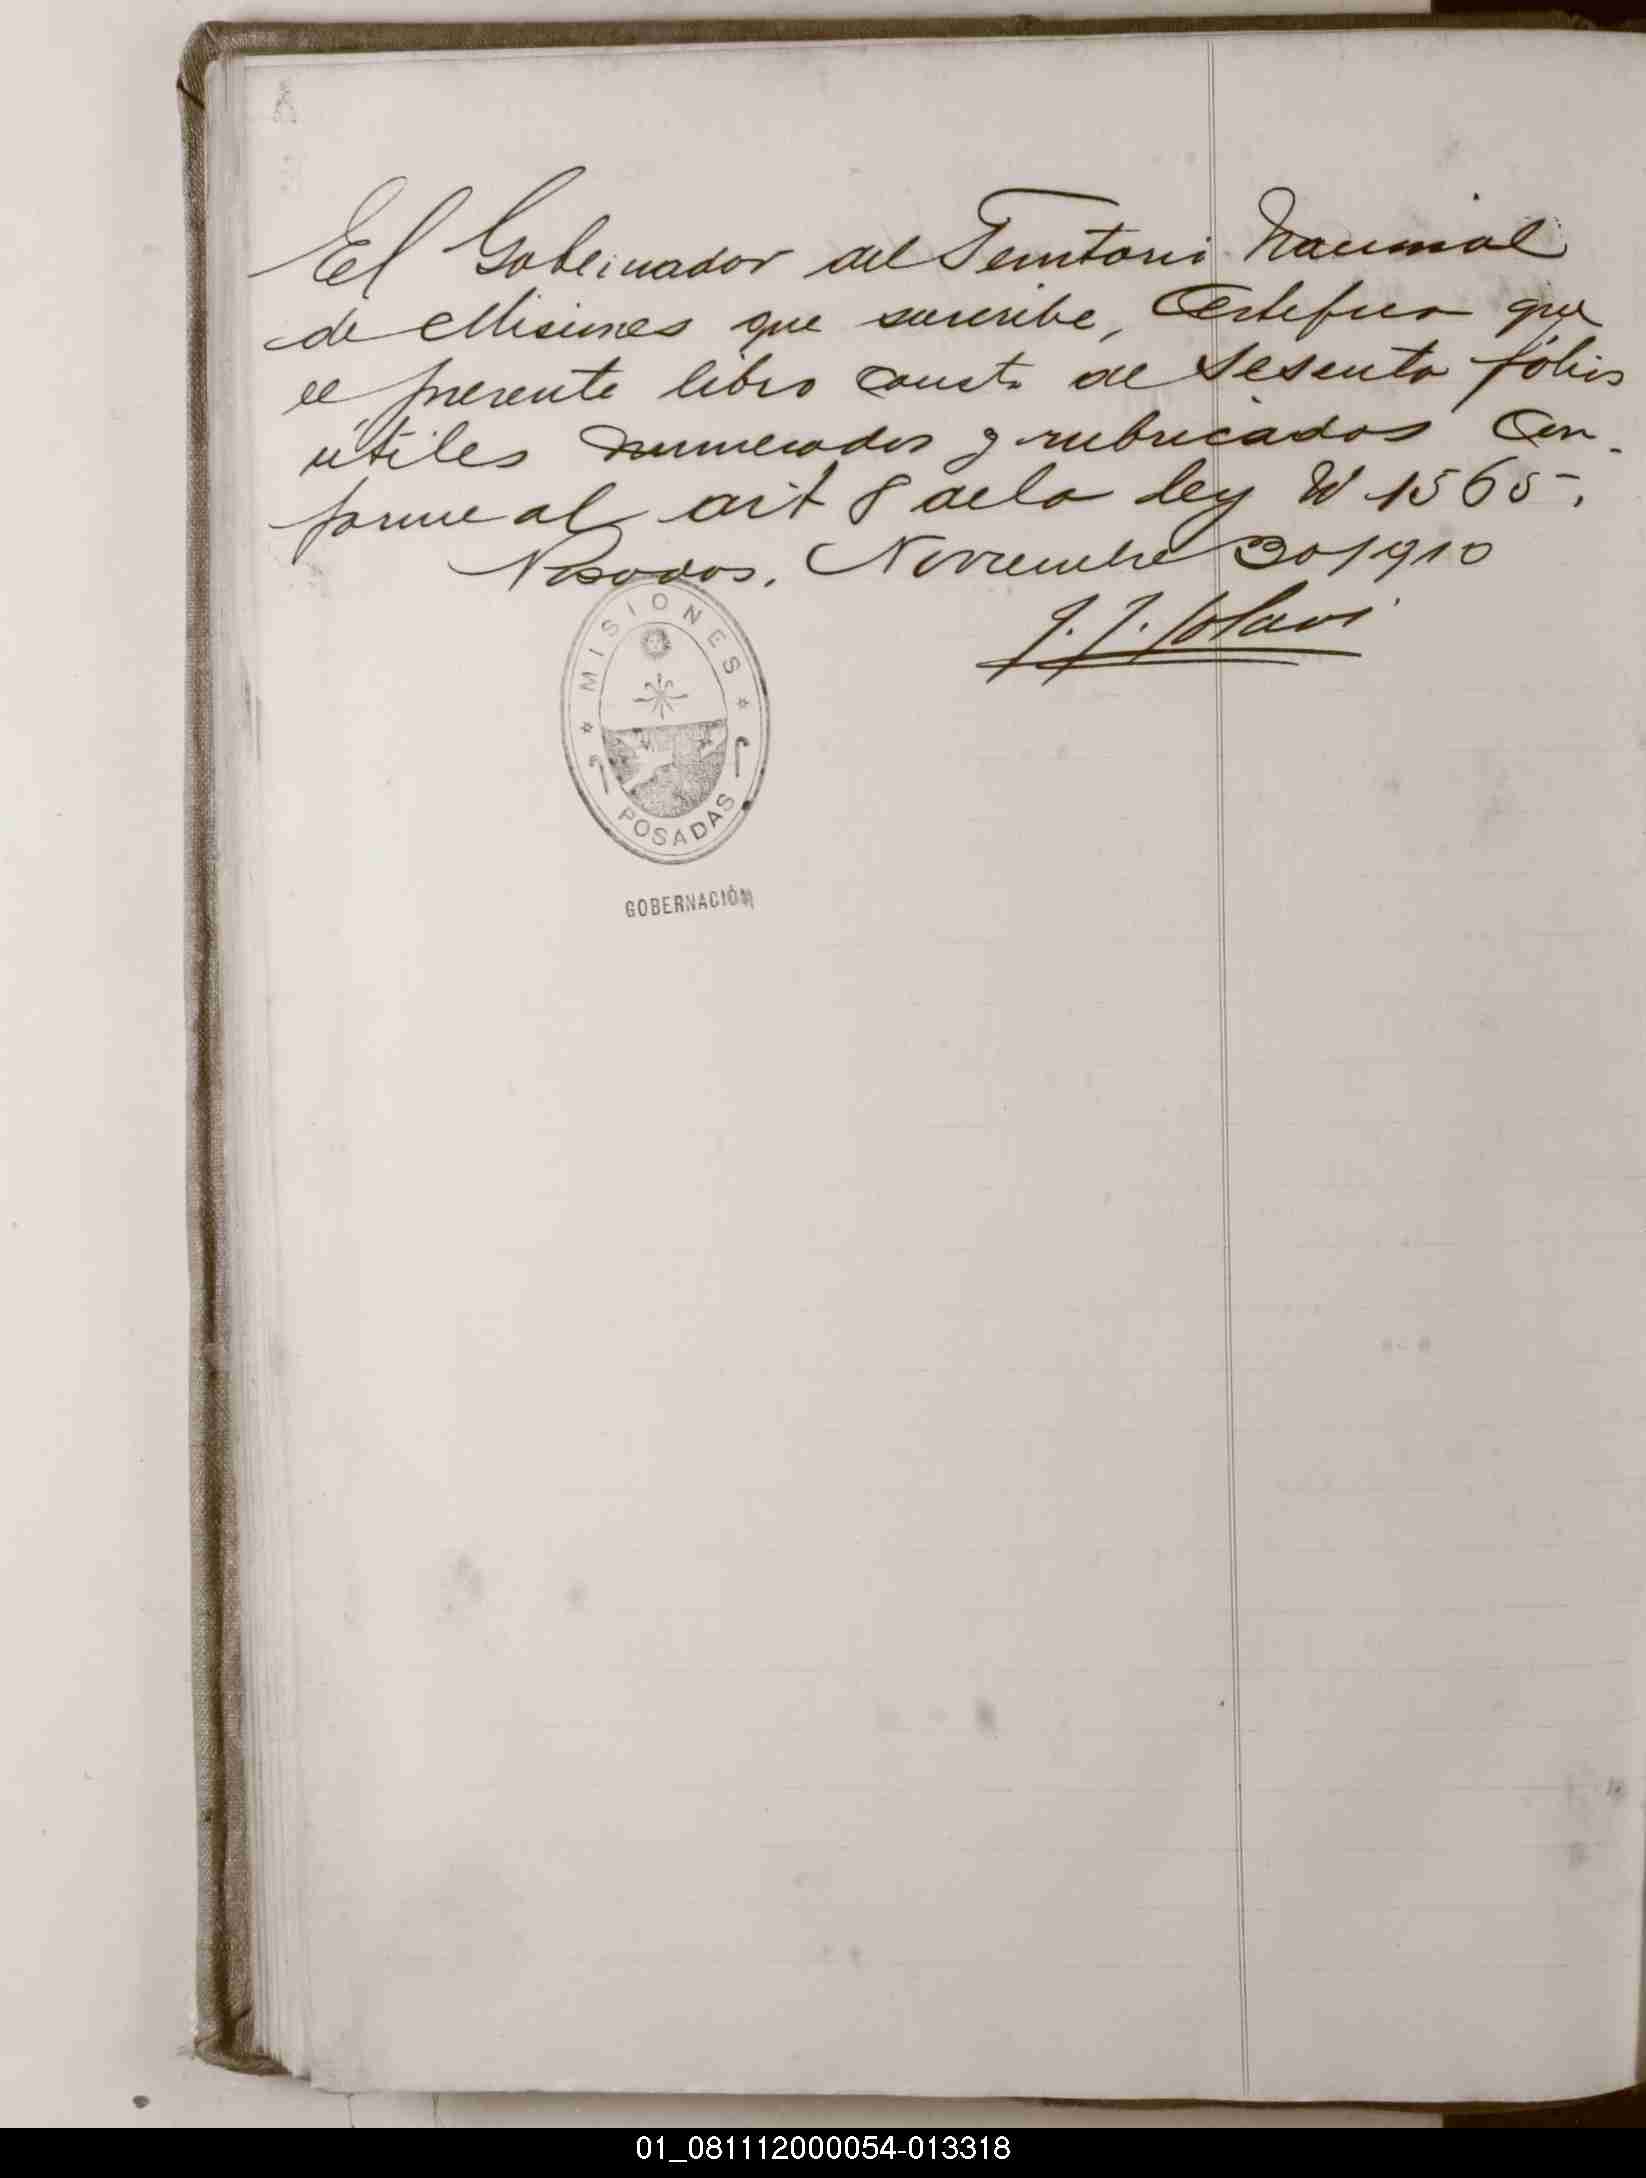 El Gobernador del Territorio Nacional
de Misiones que suscribe, Certifica que
el presente libro consta de sesenta fólios
útiles numerados y rubricados Con-
forme al art 8 de la ley Nº 1565.
Posadas, Noviembre 30/910
J. J.
MISIONES
POSADAS
GOBERNACIÓN
01_081112000054-013318